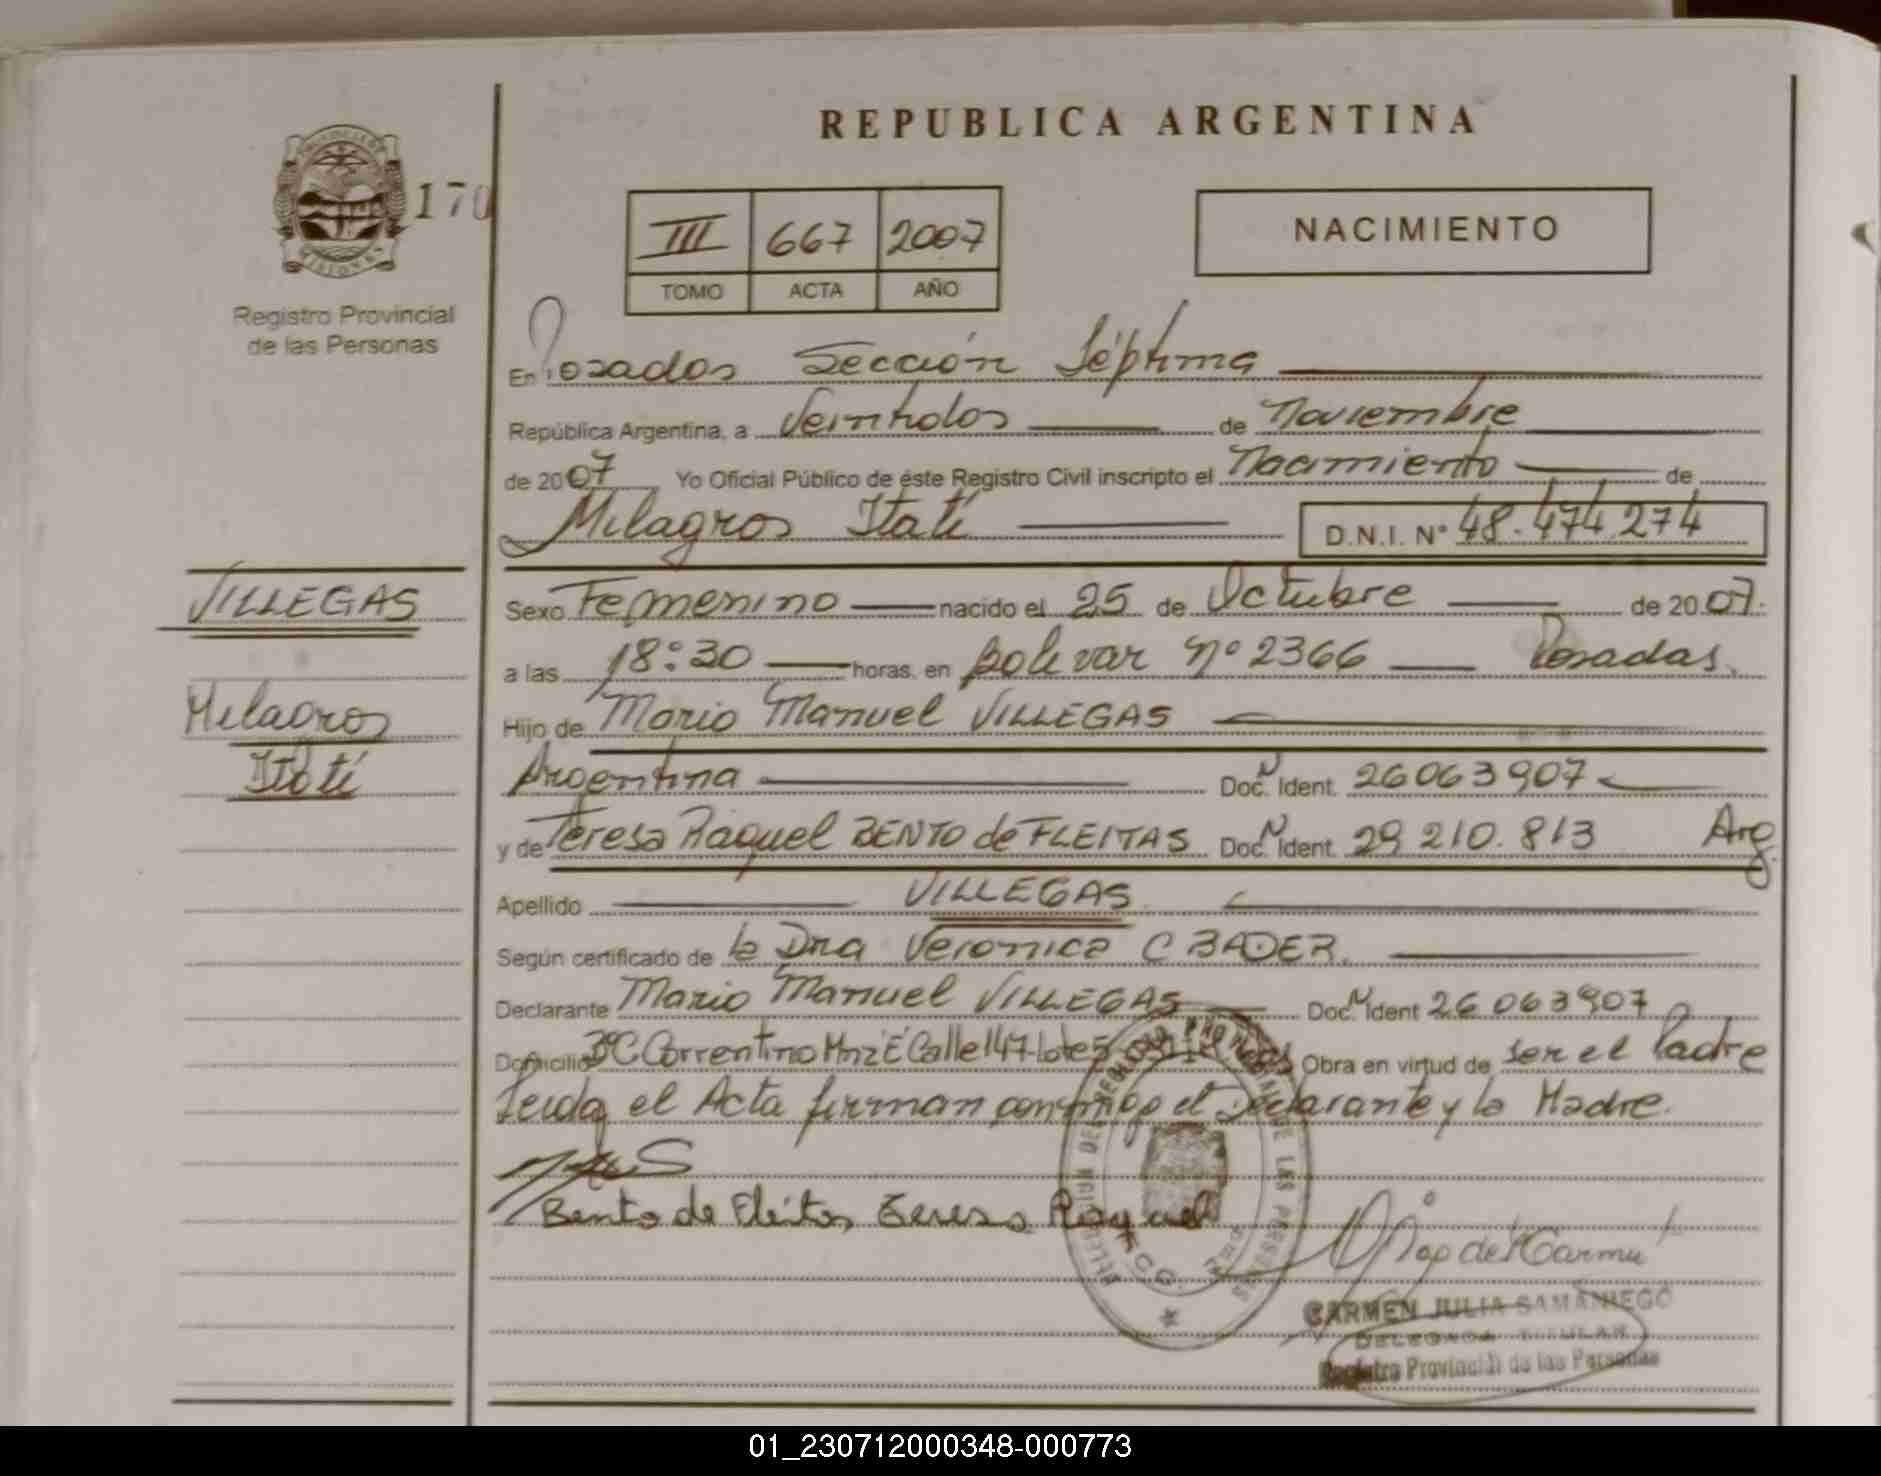 REPUBLICA ARGENTINA
PROVINCIA DE
MISIONES
170
Registro Provincial
de las Personas
III 667 2007
TOMO ACTA AÑO
NACIMIENTO
En Posadas Sección Séptima
República Argentina, a Veintidos de Noviembre
de 2007 Yo Oficial Público de éste Registro Civil inscripto el Nacimiento de
Milagros Itatí D.N.I. N° 48.474.274
VILLEGAS
Milagros
Itatí
Sexo Femenino nacido el 25 de Octubre de 2007.
a las 18:30 horas, en Bolivar N° 2366 Posadas.
Hijo de Mario Manuel VILLEGAS
Argentina Doc. Ident. 26063907
y de Teresa Raquel BENTO de FLEITAS Doc. Ident. 29 210.813 Arg.
Apellido VILLEGAS
Según certificado de la Dra Veronica C BADER.
Declarante Mario Manuel VILLEGAS Doc. Ident 26 063907
Domicilio Bº C. Correntino Mnz E Calle 147 lote 5 Obra en virtud de ser el Padre
Leida el Acta firman conmigo el Declarante y la Madre.
Bento de Fleitas Teresa Raquel
CARMEN JULIA SAMANIEGO
DELEGADA TITULAR
Registro Provincial de las Personas
01_230712000348-000773